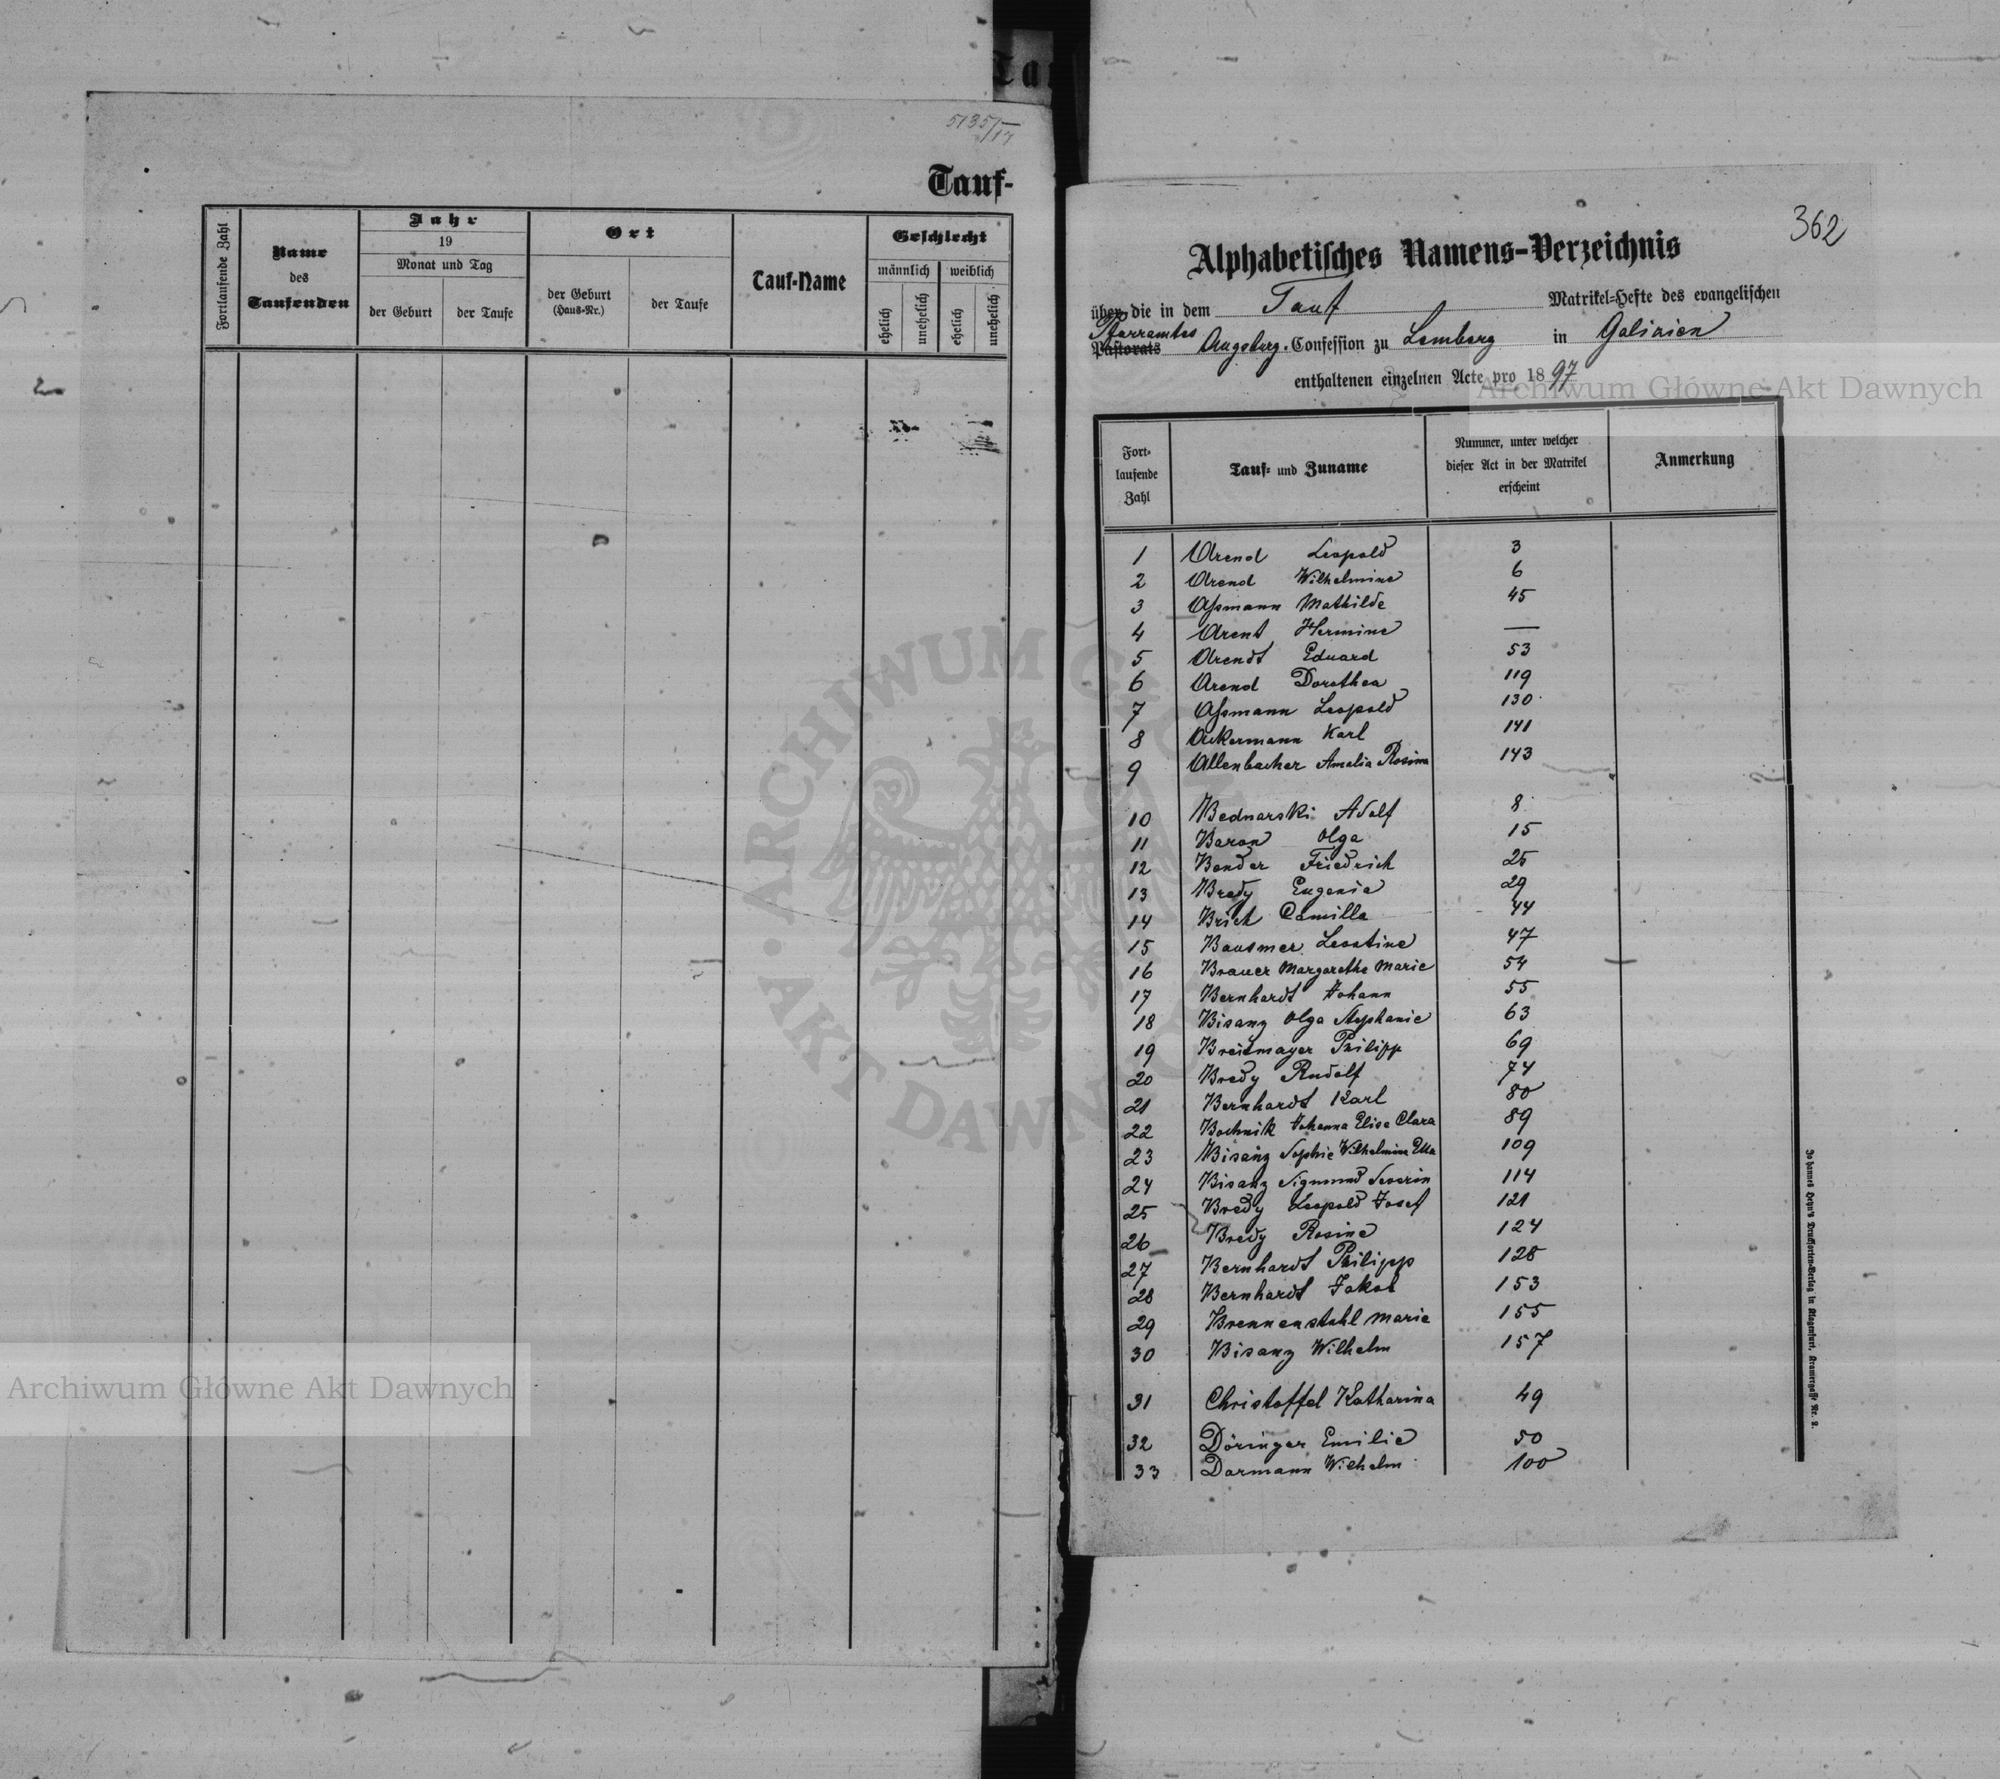 5135/17
Tauf-
Fortlaufende Zahl
Name
des
Taufenden
Jahr
19
Monat und Tag
der Geburt
der Taufe
Ort
der Geburt
(Haus-Nr.)
der Taufe
Tauf-Name
Geschlecht
männlich
weiblich
ehelich
unehelich
ehelich
unehelich
362
Alphabetisches Namens-Verzeichnis
über die in dem Tauf Matrikel-Hefte des evangelischen
Pfarramtes
Pastorats Augsburg. Confession zu Lemberg in Galizien
enthaltenen einzelnen Acte pro 1897
Archiwum Główne Akt Dawnych
Fort-
laufende
Zahl
Tauf- und Zuname
Nummer, unter welcher
dieser Act in der Matrikel
erscheint
Anmerkung
1 Arend Leopold 3
2 Arend Wilhelmine 6
3 Aßmann Mathilde 45
4 Arent Hermine —
5 Arendt Eduard 53
6 Arend Dorothea 119
7 Aßmann Leopold 130
8 Ackermann Karl 141
9 Allenbacher Amalia Rosina 143
10 Bednarski Adolf 8
11 Baron Olga 15
12 Bender Friedrich 25
13 Bredy Eugenie 29
14 Brich Camilla 44
15 Bausmer Leontine 47
16 Brauer Margarethe Marie 54
17 Bernhardt Johann 55
18 Bisanz Olga Stephanie 63
19 Breitmayer Philipp 69
20 Bredy Rudolf 74
21 Bernhardt Karl 80
22 Bochnik Johanna Elise Clara 89
23 Bisanz Sophie Wilhelmine Ella 109
24 Bisanz Sigmund Severin 114
25 Bredy Leopold Josef 121
26 Bredy Rosine 124
27 Bernhardt Philipp 128
28 Bernhardt Jakob 153
29 Brennenstuhl Marie 155
30 Bisanz Wilhelm 157
31 Christoffel Katharina 49
32 Döringer Emilie 50
33 Darmann Wilhelm 100
Johannes Heyn's Drucksorten-Verlag in Klagenfurt, Kramergasse Nr. 2.
ARCHIWUM GŁÓWNE AKT DAWNYCH
Archiwum Główne Akt Dawnych